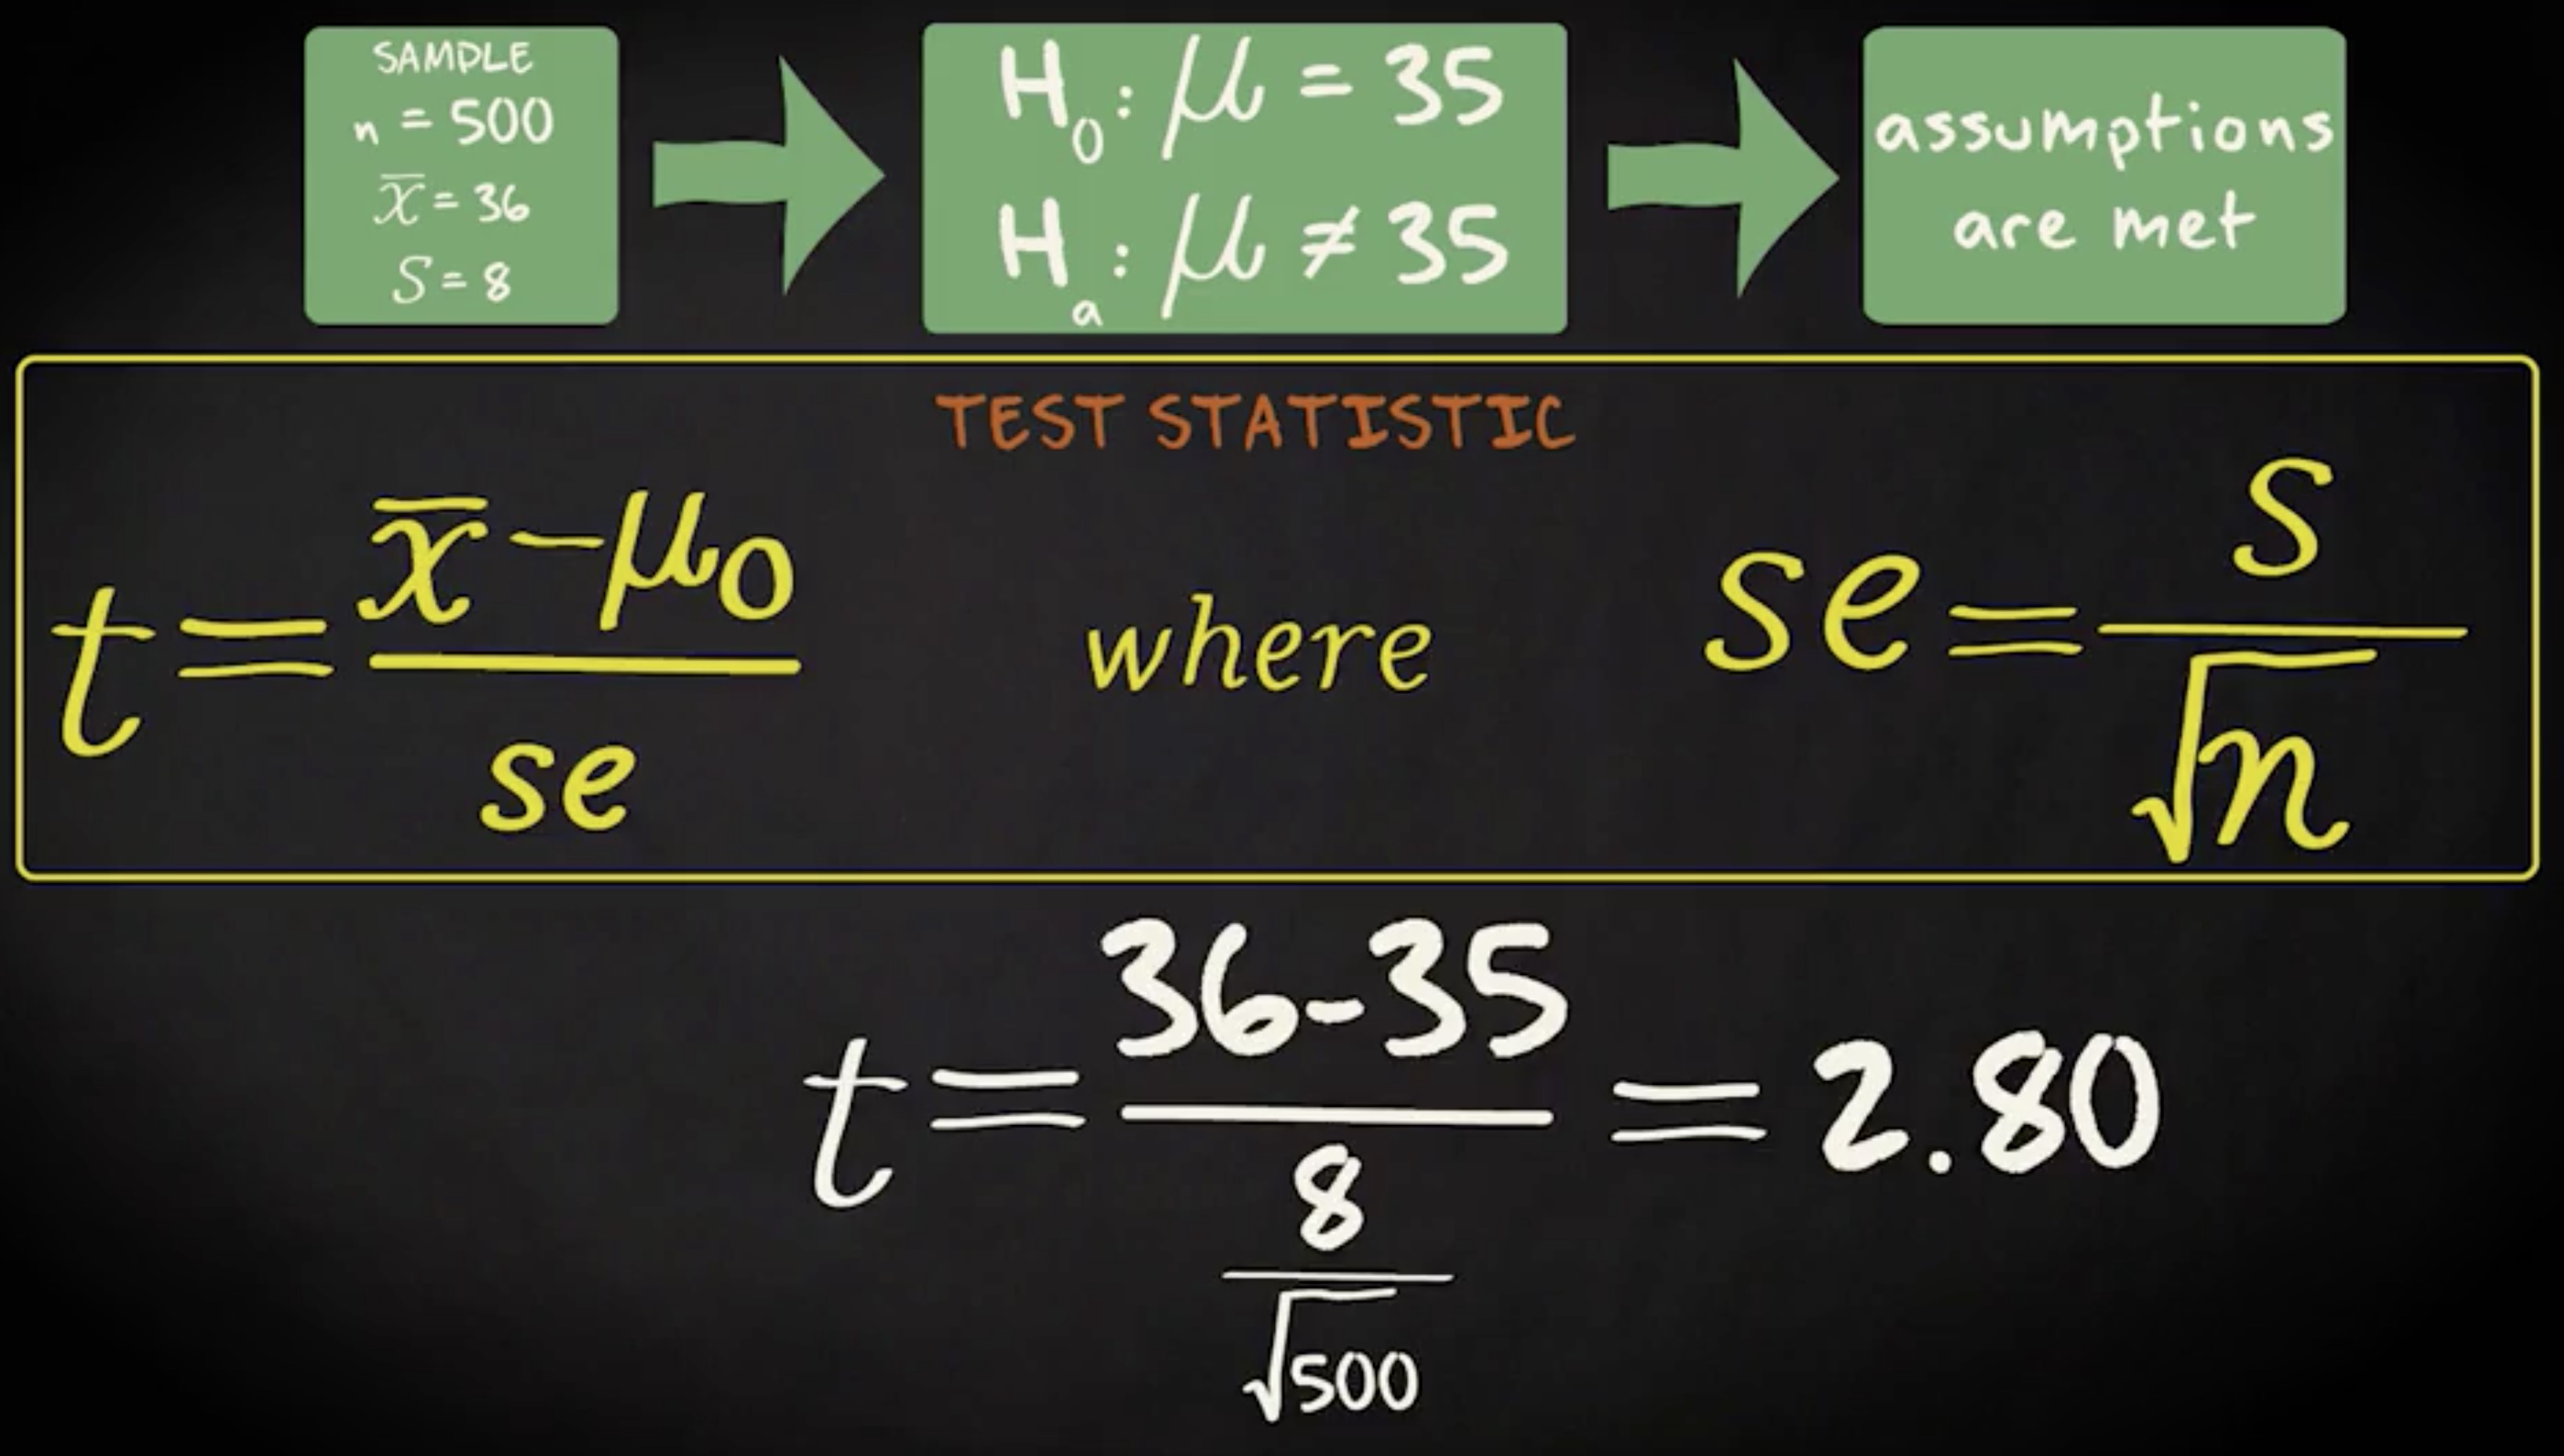 SAMPLE
n = 500
x̅ = 36
S = 8
H₀: μ = 35
Hₐ: μ ≠ 35
assumptions
are met
TEST STATISTIC
t = (x̅ − μ₀) / se
where
se = s / √n
t = (36-35) / (8 / √500) = 2.80